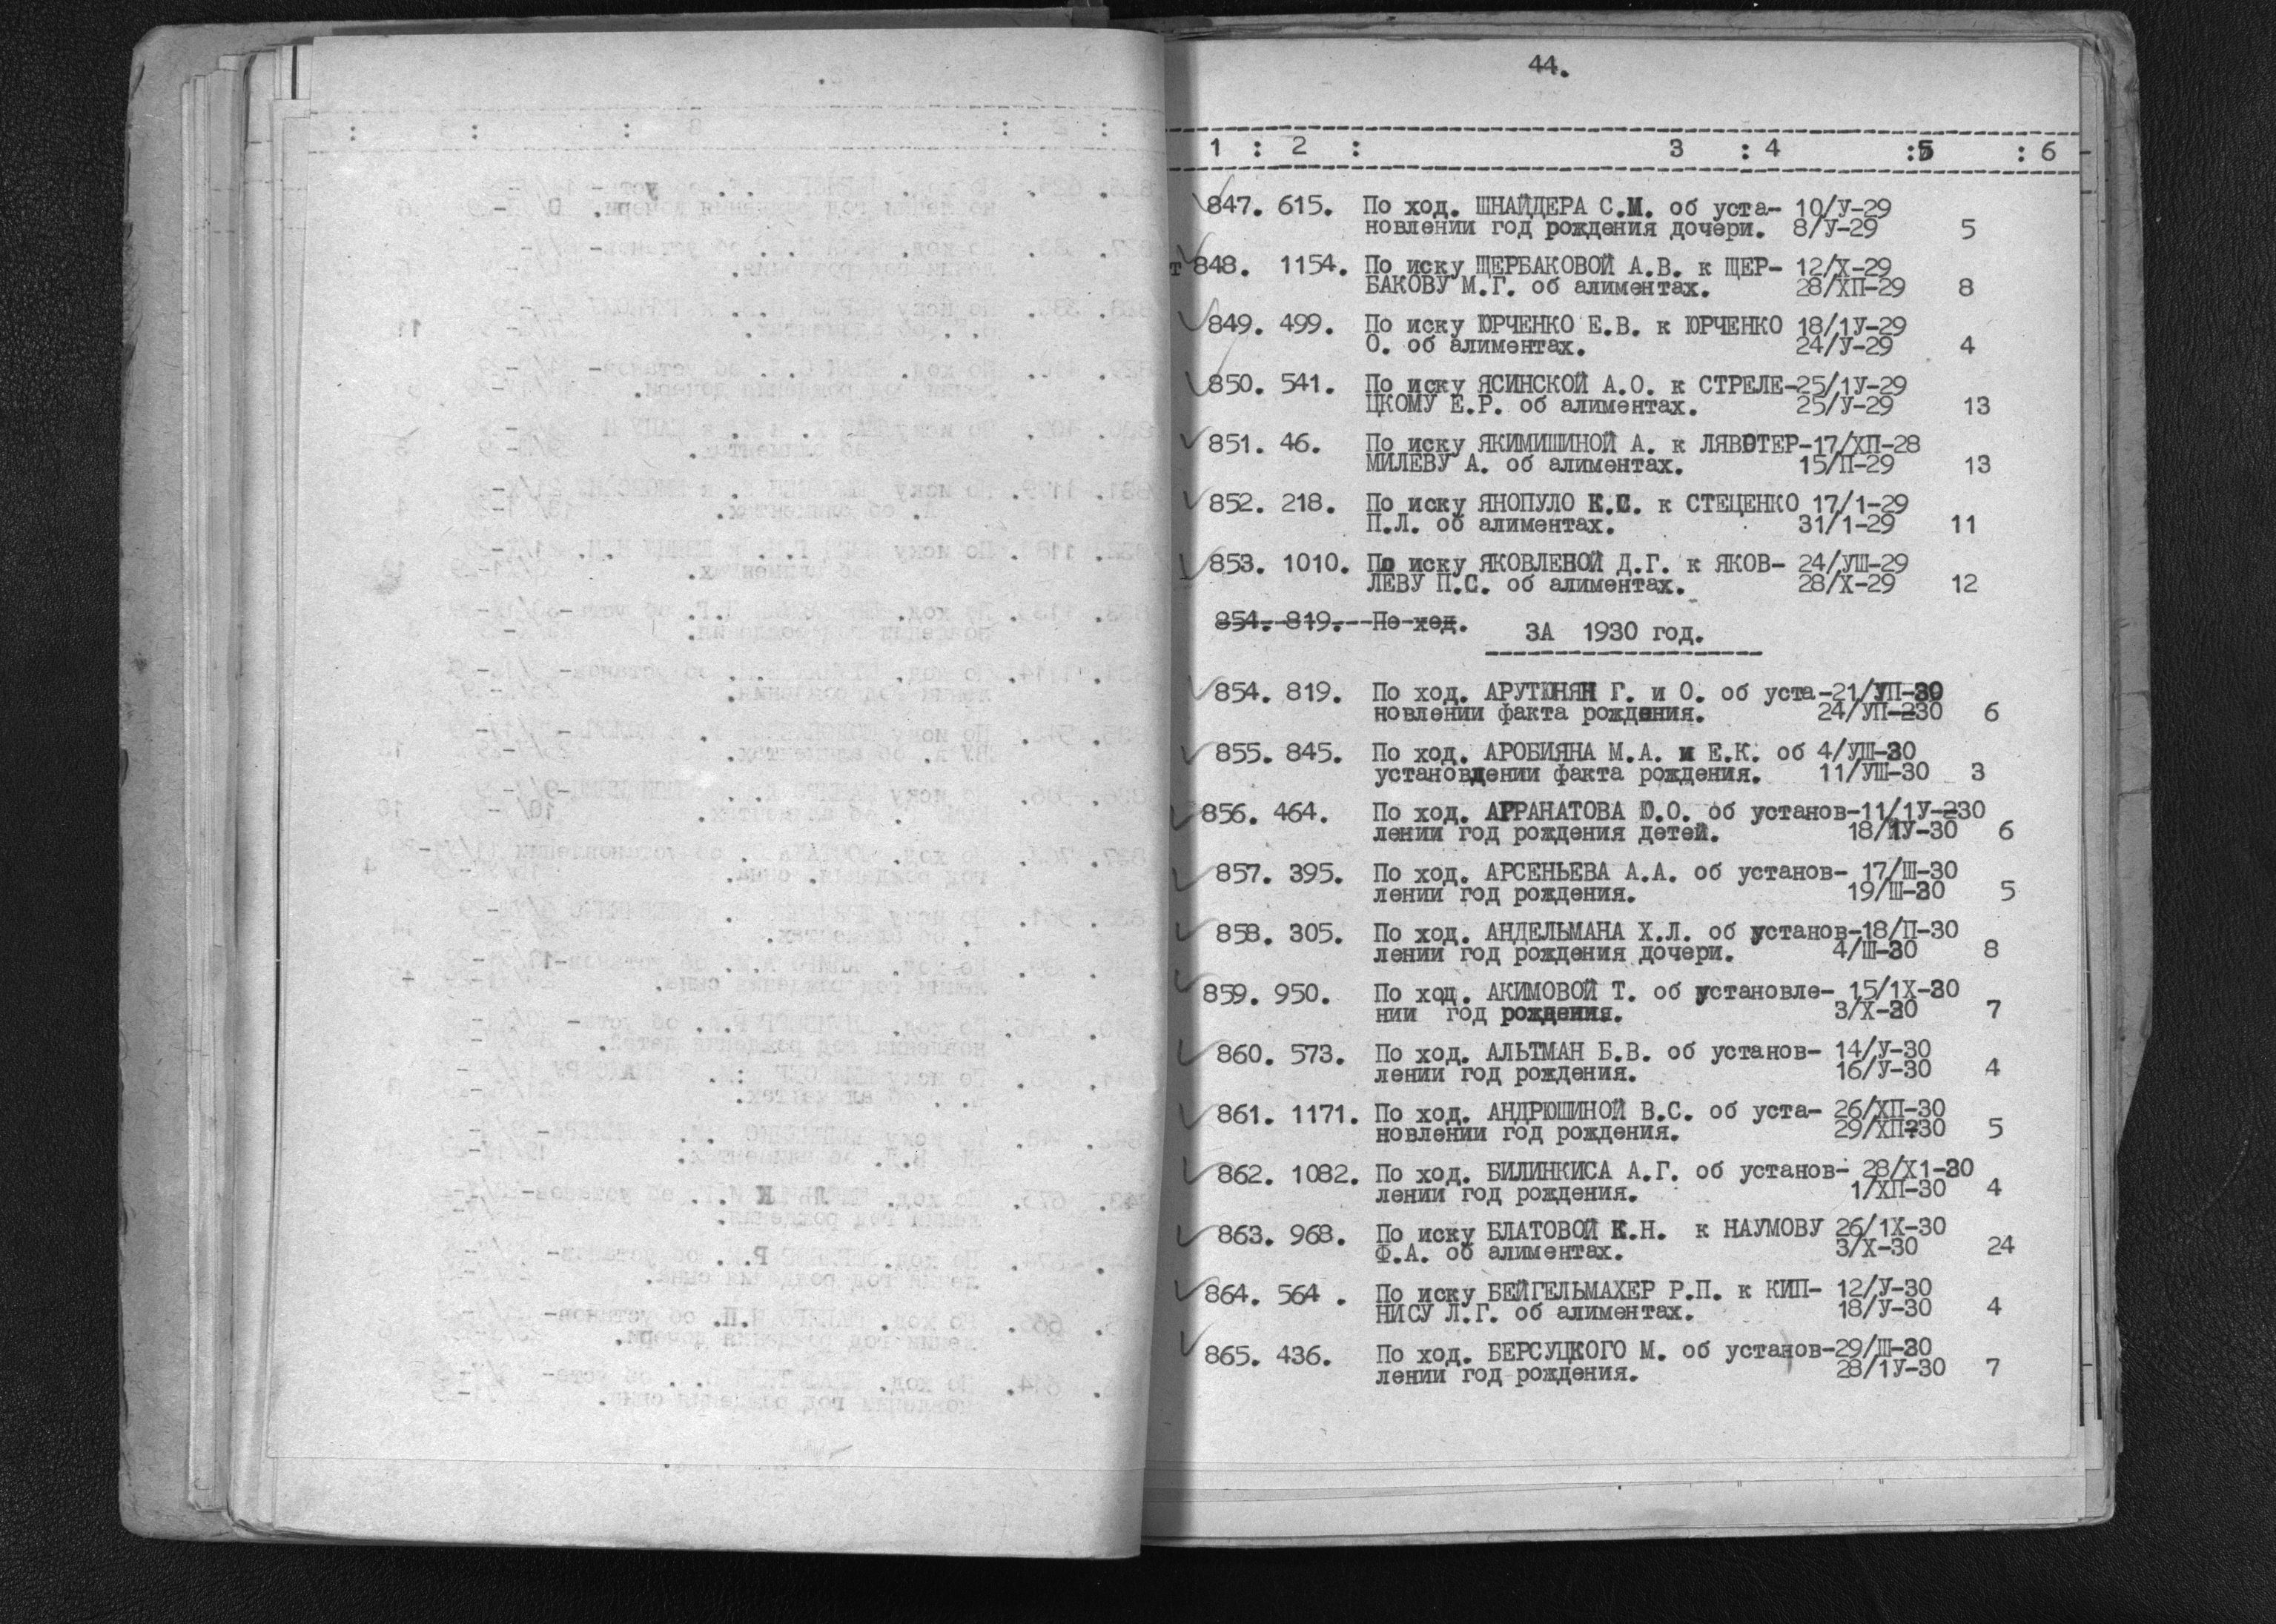 44.
1 : 2 : 3 : 4 :5 : 6
847. 615. По ход. ШНАЙДЕРА С.М. об уста- 10/У-29
новлении год рождения дочери. 8/У-29 5
т 848. 1154. По иску ЩЕРБАКОВОЙ А.В. к ЩЕР- 12/Х-29
БАКОВУ М.Г. об алиментах. 28/ХП-29 8
849. 499. По иску ЮРЧЕНКО Е.В. к ЮРЧЕНКО 18/1У-29
О. об алиментах. 24/У-29 4
850. 541. По иску ЯСИНСКОЙ А.О. к СТРЕЛЕ-25/1У-29
ЦКОМУ Е.Р. об алиментах. 25/У-29 13
851. 46. По иску ЯКИМИШИНОЙ А. к ЛЯВОТЕР-17/ХП-28
МИЛЕВУ А. об алиментах. 15/П-29 13
852. 218. По иску ЯНОПУЛО К.С. к СТЕЦЕНКО 17/1-29
П.Л. об алиментах. 31/1-29 11
853. 1010. По иску ЯКОВЛЕВОЙ Д.Г. к ЯКОВ- 24/УШ-29
ЛЕВУ П.С. об алиментах. 28/Х-29 12
854. 819. По ход.
ЗА 1930 год.
854. 819. По ход. АРУТЮНЯН Г. и О. об уста-21/УП-30
новлении факта рождения. 24/УП-230 6
855. 845. По ход. АРОБИЯНА М.А. и Е.К. об 4/УШ-30
установдении факта рождения. 11/УШ-30 3
856. 464. По ход. АРРАНАТОВА Ю.О. об установ-11/1У-230
лении год рождения детей. 18/1У-30 6
857. 395. По ход. АРСЕНЬЕВА А.А. об установ- 17/Ш-30
лении год рождения. 19/Ш-30 5
858. 305. По ход. АНДЕЛЬМАНА Х.Л. об установ-18/П-30
лении год рождения дочери. 4/Ш-30 8
859. 950. По ход. АКИМОВОЙ Т. об установле- 15/1Х-30
нии год рождения. 3/Х-30 7
860. 573. По ход. АЛЬТМАН Б.В. об установ- 14/У-30
лении год рождения. 16/У-30 4
861. 1171. По ход. АНДРЮШИНОЙ В.С. об уста- 26/ХП-30
новлении год рождения. 29/ХП-30 5
862. 1082. По ход. БИЛИНКИСА А.Г. об установ- 28/Х1-30
лении год рождения. 1/ХП-30 4
863. 968. По иску БЛАТОВОЙ К.Н. к НАУМОВУ 26/1Х-30
Ф.А. об алиментах. 3/Х-30 24
864. 564 . По иску БЕЙГЕЛЬМАХЕР Р.П. к КИП- 12/У-30
НИСУ Л.Г. об алиментах. 18/У-30 4
865. 436. По ход. БЕРСУЦКОГО М. об установ-29/Ш-30
лении год рождения. 28/1У-30 7